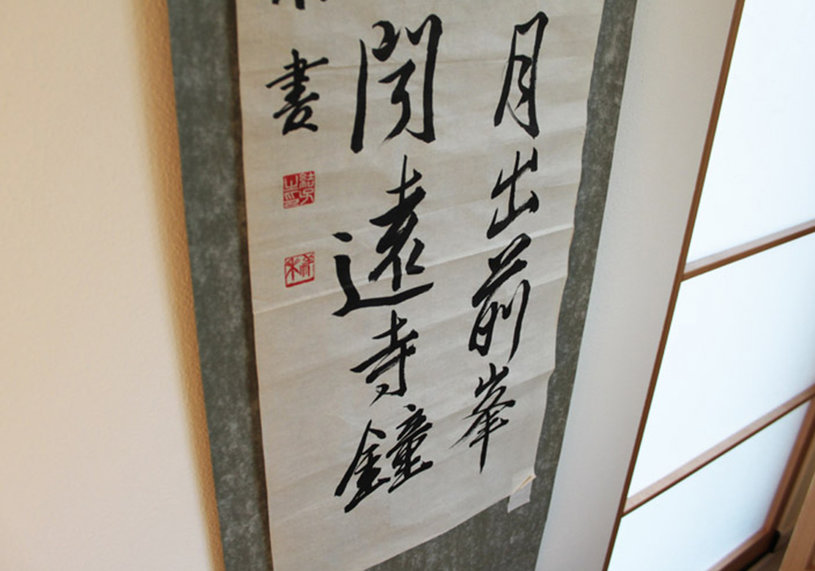 月出前峯
聞遠寺鐘
書